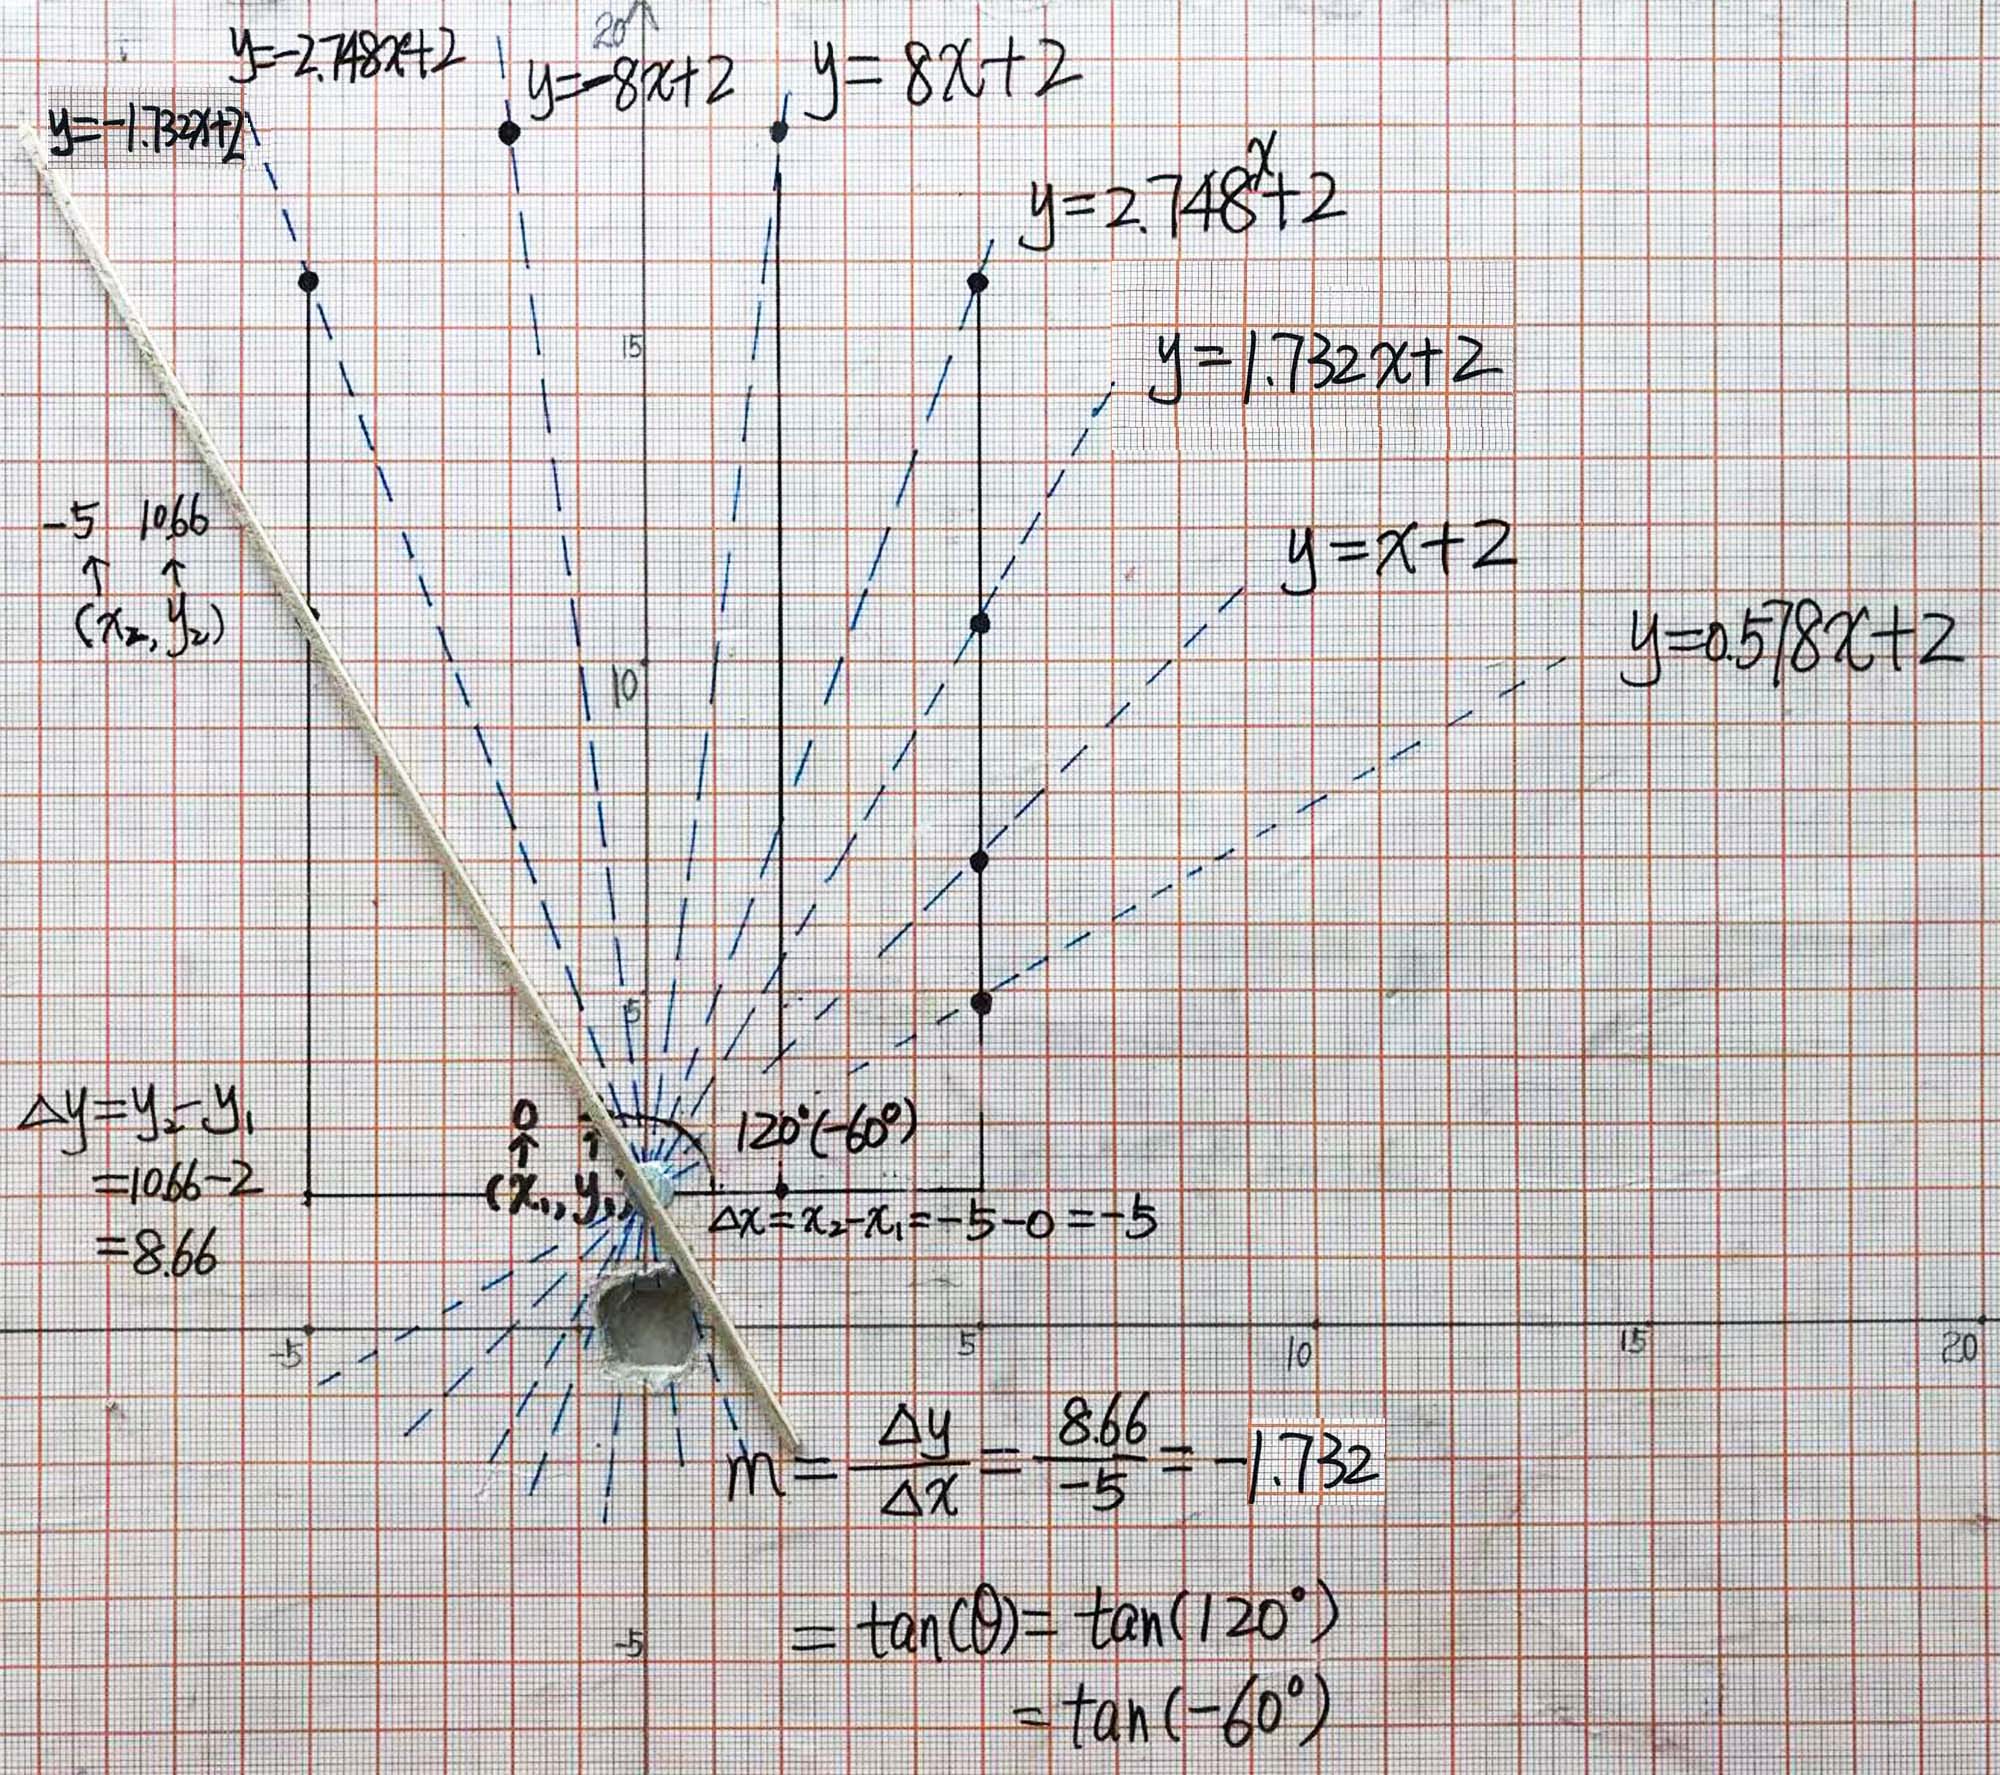 20
y=-2.748x+2
y=-8x+2
y=8x+2
y=-1.732x+2
y=2.748^x+2
15
y=1.732x+2
-5 10.66
↑ ↑
(x₂, y₂)
y=x+2
y=0.578x+2
10
5
Δy=y₂-y₁
=10.66-2
=8.66
0
↑ ↑
(x₁, y₁)
120°(-60°)
Δx=x₂-x₁=-5-0=-5
-5
5
10
15
20
m = Δy/Δx = 8.66/-5 = -1.732
-5
= tan(θ) = tan(120°)
= tan(-60°)